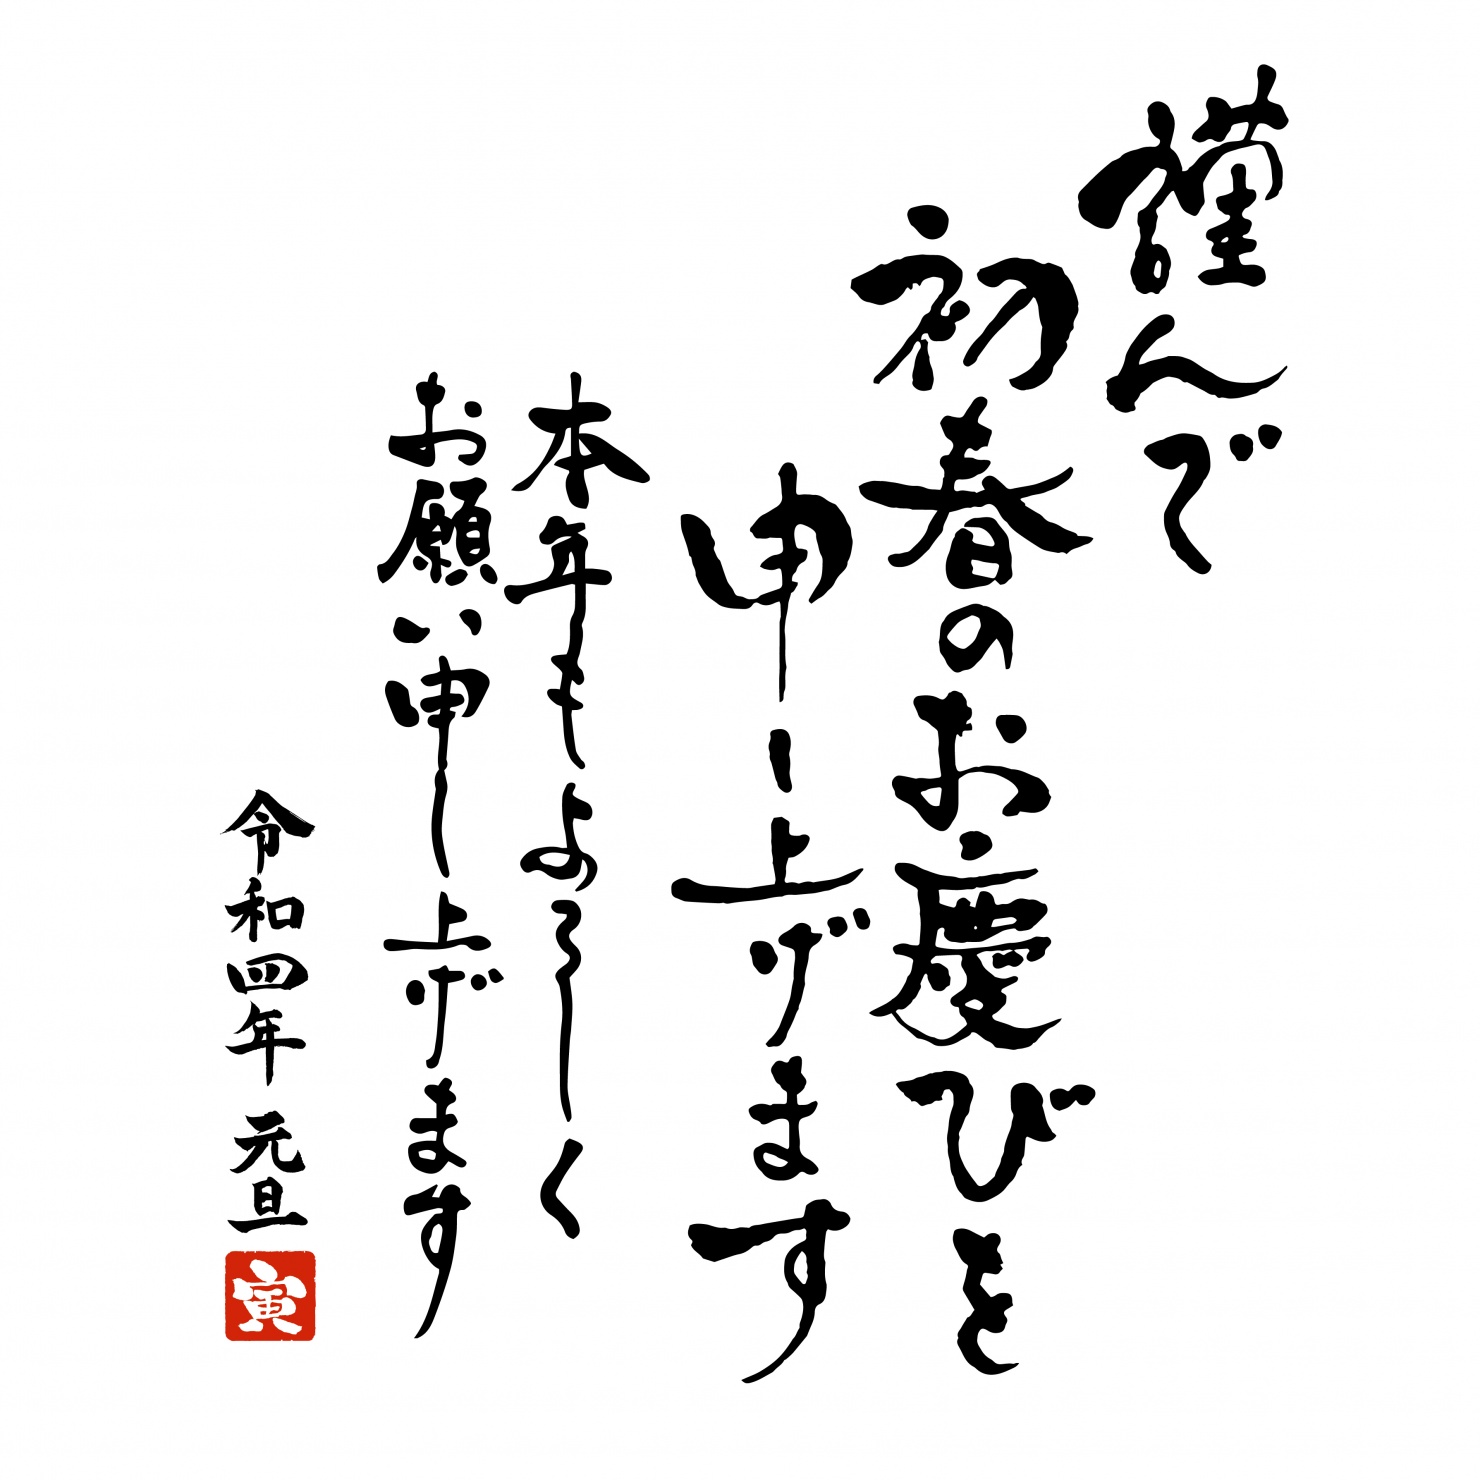 謹んで
初春のお慶びを
申し上げます
本年もよろしく
お願い申し上げます
令和四年 元旦
寅